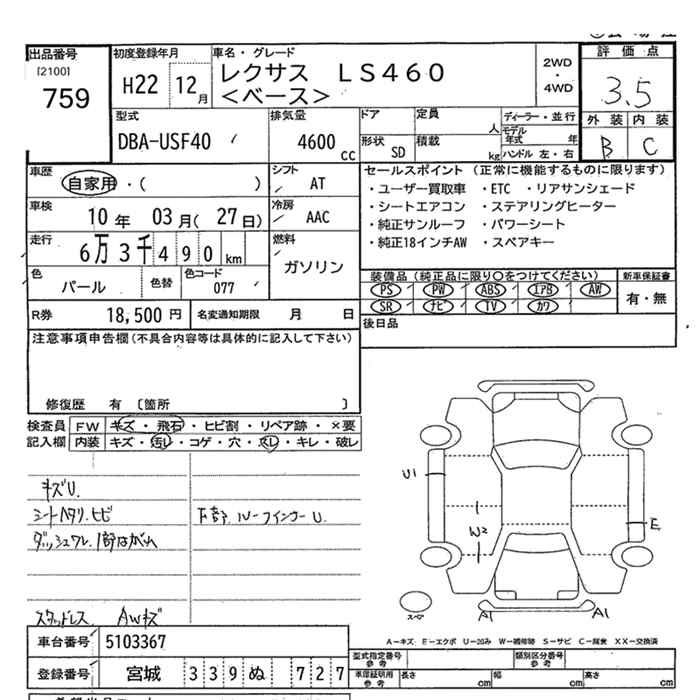 出品番号
[2100]
759
初度登録年月
H22 12月
車名・グレード
レクサス LS460
<ベース>
2WD
・
4WD
評価点
3.5
外装 内装
B C
型式
DBA-USF40
排気量
4600 cc
ドア
定員 人
形状 SD
積載 kg
ディーラー・並行
モデル年式 年
ハンドル 左・右
車歴
自家用・( )
シフト
AT
車検
10年 03月(27日)
冷房
AAC
走行
6万3千490km
燃料
ガソリン
色
パール
色替
色コード
077
R券 18,500円
名変通知期限 月 日
セールスポイント (正常に機能するものに限ります)
・ユーザー買取車 ・ETC ・リアサンシェード
・シートエアコン ・ステアリングヒーター
・純正サンルーフ ・パワーシート
・純正18インチAW ・スペアキー
装備品 (純正品に限り○をつけてください)
新車保証書
PS PW ABS エアB AW
SR ナビ TV カワ
有・無
後日品
注意事項申告欄 (不具合内容等は具体的に記入して下さい)
修復歴 有 [箇所 ]
検査員記入欄
FW キズ・飛石・ヒビ割・リペア跡・×要
内装 キズ・汚レ・コゲ・穴・スレ・キレ・破レ
キズU.
シートヘタリ.ヒビ
ダッシュワレ.1部はがれ
下部.ルーフインナーU.
スタッドレス AWキズ
U1
W2
E
スペア
A1
A1
A−キズ E−エクボ U−凹み W−補修跡 S−サビ C−腐食 XX−交換済
車台番号 5103367
登録番号 宮城 339 ぬ 727
型式指定番号
参考
類別区分番号
参考
車庫証明用
参考
長さ cm
幅 cm
高さ cm